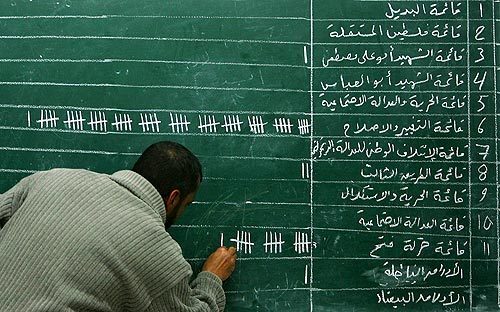 1 قائمة البديل
2 قائمة فلسطين المستقلة
3 قائمة الشهيد أبو علي مصطفى
4 قائمة الشهيد أبو العباس
5 قائمة الحرية والعدالة الاجتماعية
6 قائمة التغيير والاصلاح
7 قائمة الإئتلاف الوطني للعدالة
8 قائمة الطريق الثالث
9 قائمة الحرية والاستقلال
10 قائمة العدالة الاجتماعية
11 قائمة حركة فتح
الأوراق الباطلة
الأوراق البيضاء